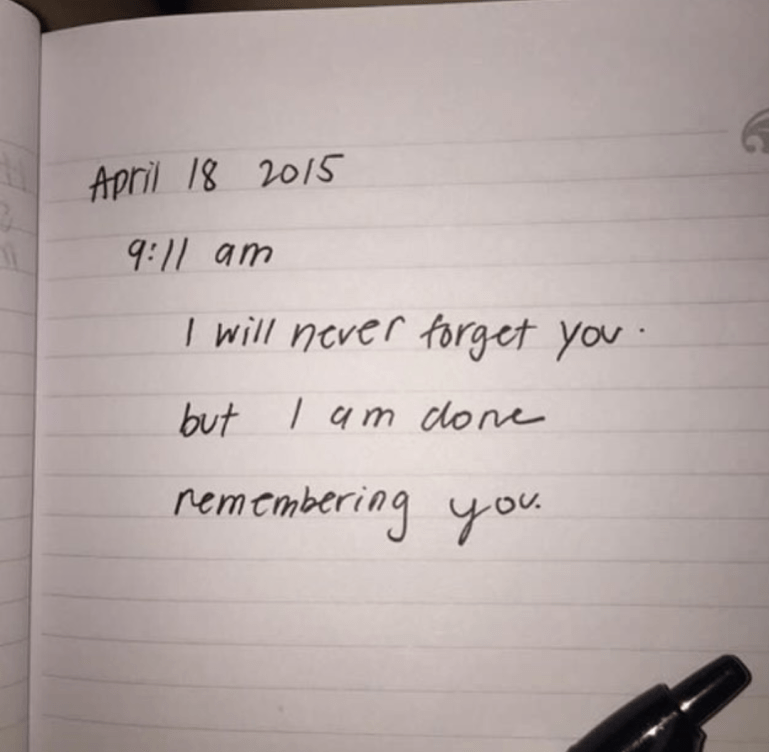 April 18 2015
9:11 am
I will never forget you.
but I am done
remembering you.